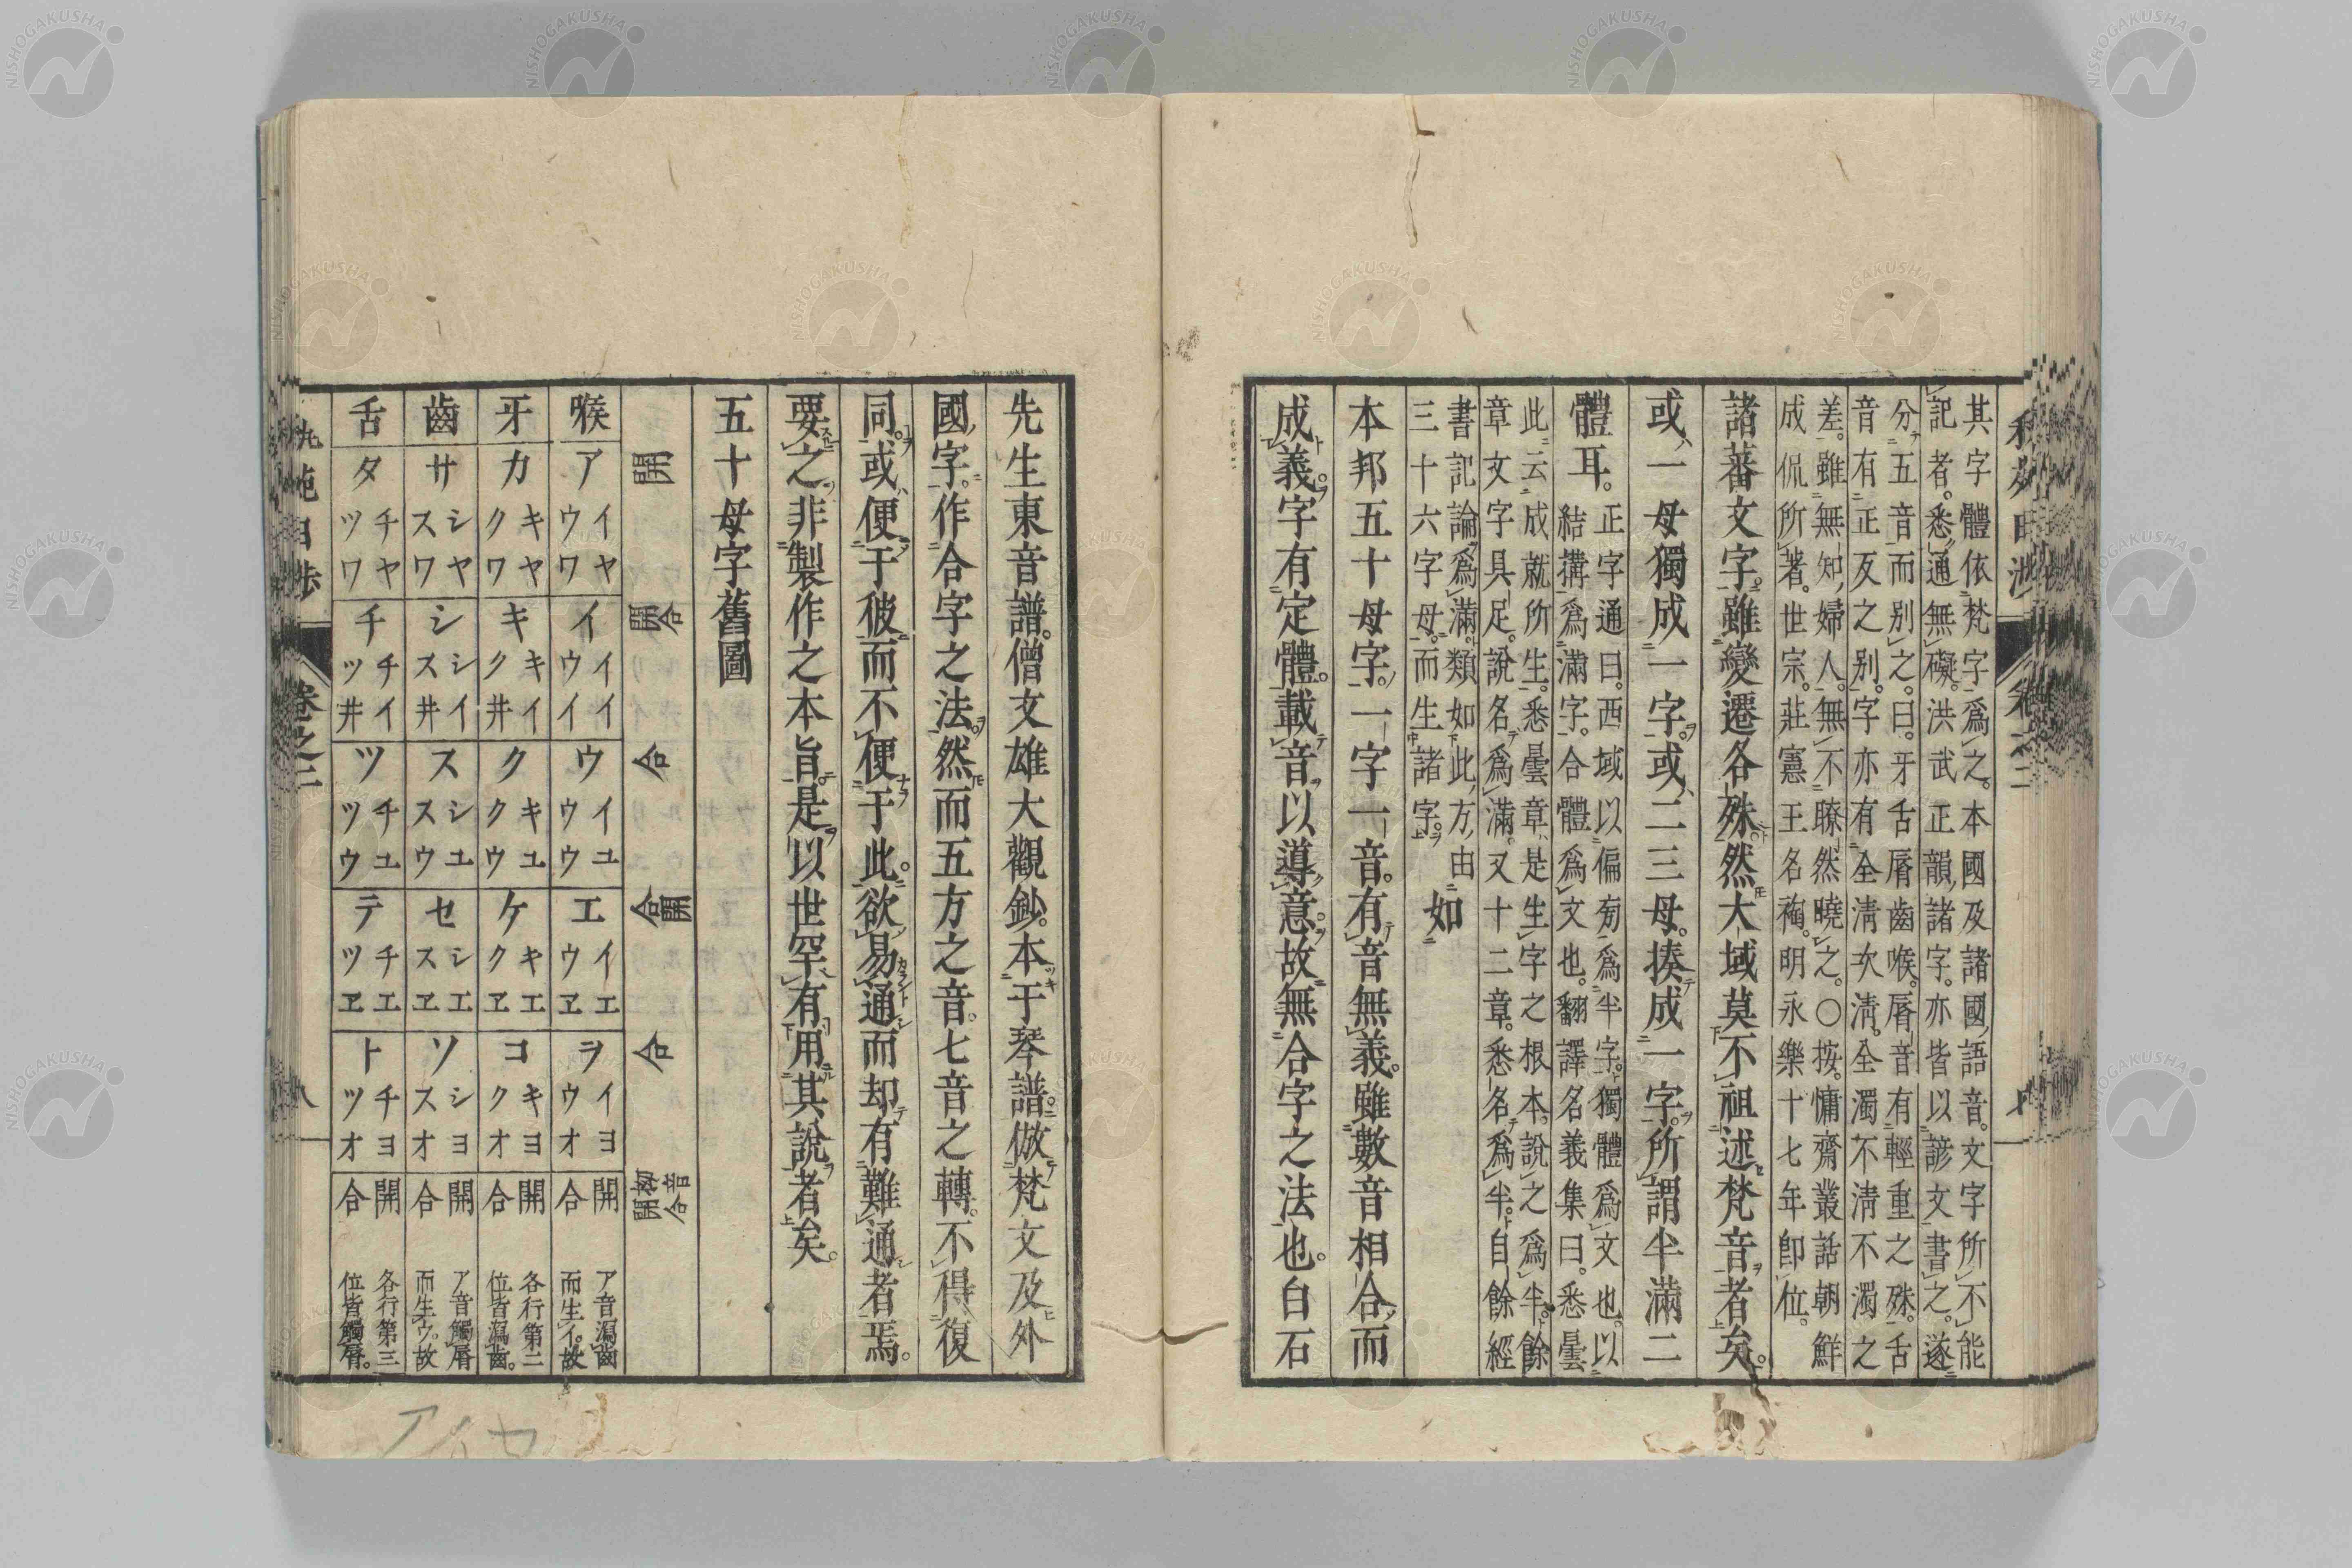 其字體依梵字爲之。本國及諸國語音。文字所不能
記者。悉通無礙。洪武正韻諸字。亦皆以諺文書之。遂
分五音而別之。曰。牙舌脣齒喉。脣音有輕重之殊。舌
音有正反之別。字亦有全淸次淸。全濁不淸不濁之
差。雖無知婦人。無不瞭然曉之。〇按。慵齋叢話朝鮮
成俔所著。世宗。莊憲王名裪。明永樂十七年卽位。
諸蕃文字。雖變遷各殊。然大域莫不祖述梵音者矣。
或一母獨成一字。或二三母。揍成一字。所謂半滿二
體耳。
正字通曰。西域以偏㫄爲半字。獨體爲文也。以
結搆爲滿字。合體爲文也。翻譯名義集曰。悉曇
此云成就所生。悉曇章是生字之根本。說之爲半。餘
章文字具足。說名爲滿。又十二章。悉名爲半。自餘經
書記論爲滿。類如此方由
三十六字母。而生諸字。
如
本邦五十母字。一字一音。有音無義。雖數音相合而
成義。字有定體。載音以導意。故無合字之法也。白石
先生東音譜。僧文雄大觀鈔。本于琴譜。倣梵文及外
國字。作合字之法。然而五方之音。七音之轉。不得復
同。或便于彼而不便于此。欲易通而却有難通者焉。
要之非製作之本旨。是以世罕有用其說者矣。
五十母字舊圖
開
開合
合
合開
合
初音開合
喉
ア イヤ ウワ
イ イイ ウイ
ウ イユ ウウ
エ イエ ウヱ
ヲ イヨ ウオ
開合
ア音濁齒而生イ。故
牙
カ キヤ クワ
キ キイ ク井
ク キユ クウ
ケ キエ クヱ
コ キヨ クオ
開合
各行第二位皆濁齒。
齒
サ シヤ スワ
シ シイ ス井
ス シユ スウ
セ シエ スヱ
ソ シヨ スオ
開合
ア音觸脣而生ウ。故
舌
タ チヤ ツワ
チ チイ ツ井
ツ チユ ツウ
テ チエ ツヱ
ト チヨ ツオ
開合
各行第三位皆觸脣。
卷之二
八
アイヤ
NISHOGAKUSHA